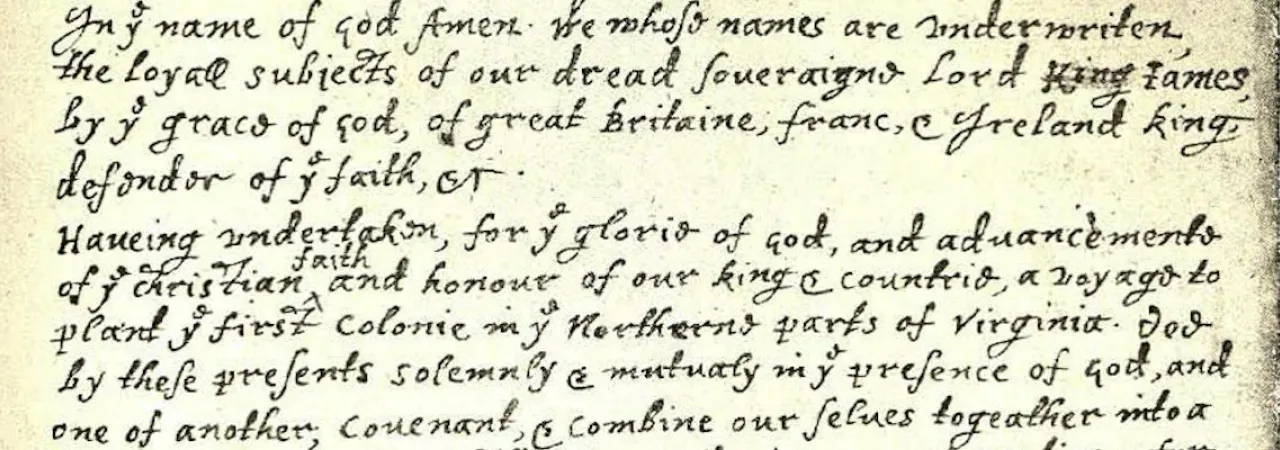 In yͤ name of god Amen. We whose names are vnderwriten,
the loyall subjects of our dread soueraigne Lord King Iames,
by yͤ grace of god, of great Britaine, franc, & Ireland king,
defender of yͤ faith, &c.
Haueing vndertaken, for yͤ glorie of god, and aduancemente
of yͤ christian faith and honour of our king & countrie, a voyage to
plant yͤ first colonie in yͤ Northerne parts of Virginia. Doe
by these presents solemnly & mutualy in yͤ presence of god, and
one of another, couenant, & combine our selues togeather into a